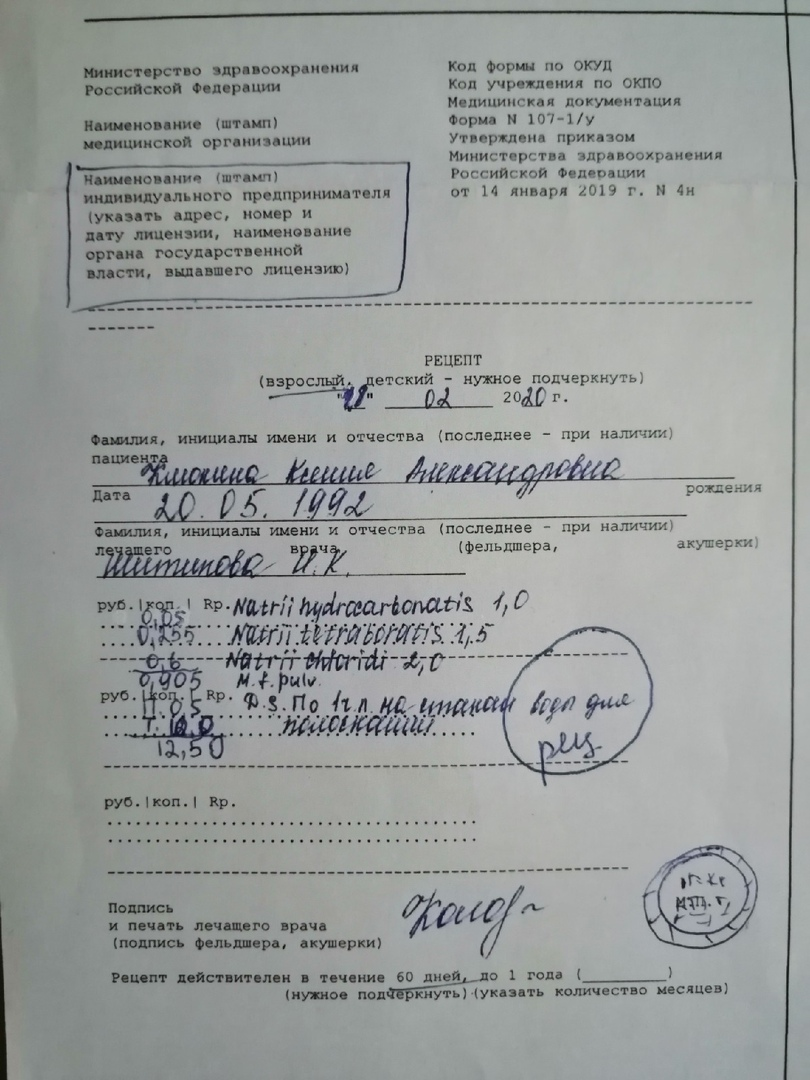 Министерство здравоохранения
Российской Федерации
Наименование (штамп)
медицинской организации
Наименование (штамп)
индивидуального предпринимателя
(указать адрес, номер и
дату лицензии, наименование
органа государственной
власти, выдавшего лицензию)
Код формы по ОКУД
Код учреждения по ОКПО
Медицинская документация
Форма N 107-1/у
Утверждена приказом
Министерства здравоохранения
Российской Федерации
от 14 января 2019 г. N 4н
РЕЦЕПТ
(взрослый, детский - нужное подчеркнуть)
02 2020 г.
Фамилия, инициалы имени и отчества (последнее - при наличии)
пациента
Ксения Александровна
Дата 20.05.1992 рождения
Фамилия, инициалы имени и отчества (последнее - при наличии)
лечащего врача (фельдшера, акушерки)
И.К.
руб.|коп.| Rp. Natrii hydrocarbonatis 1,0
0,05
0,255 Natrii tetraboratis 1,5
0,6 Natrii chloridi 2,0
0,905 M.f. pulv.
руб.|коп.| Rp. D.S. По 1 ч л. на стакан воды для
11,05
полоскания
12,50
рец.
руб.|коп.| Rp.
Подпись
и печать лечащего врача
(подпись фельдшера, акушерки)
Рецепт действителен в течение 60 дней, до 1 года (__________)
(нужное подчеркнуть) (указать количество месяцев)